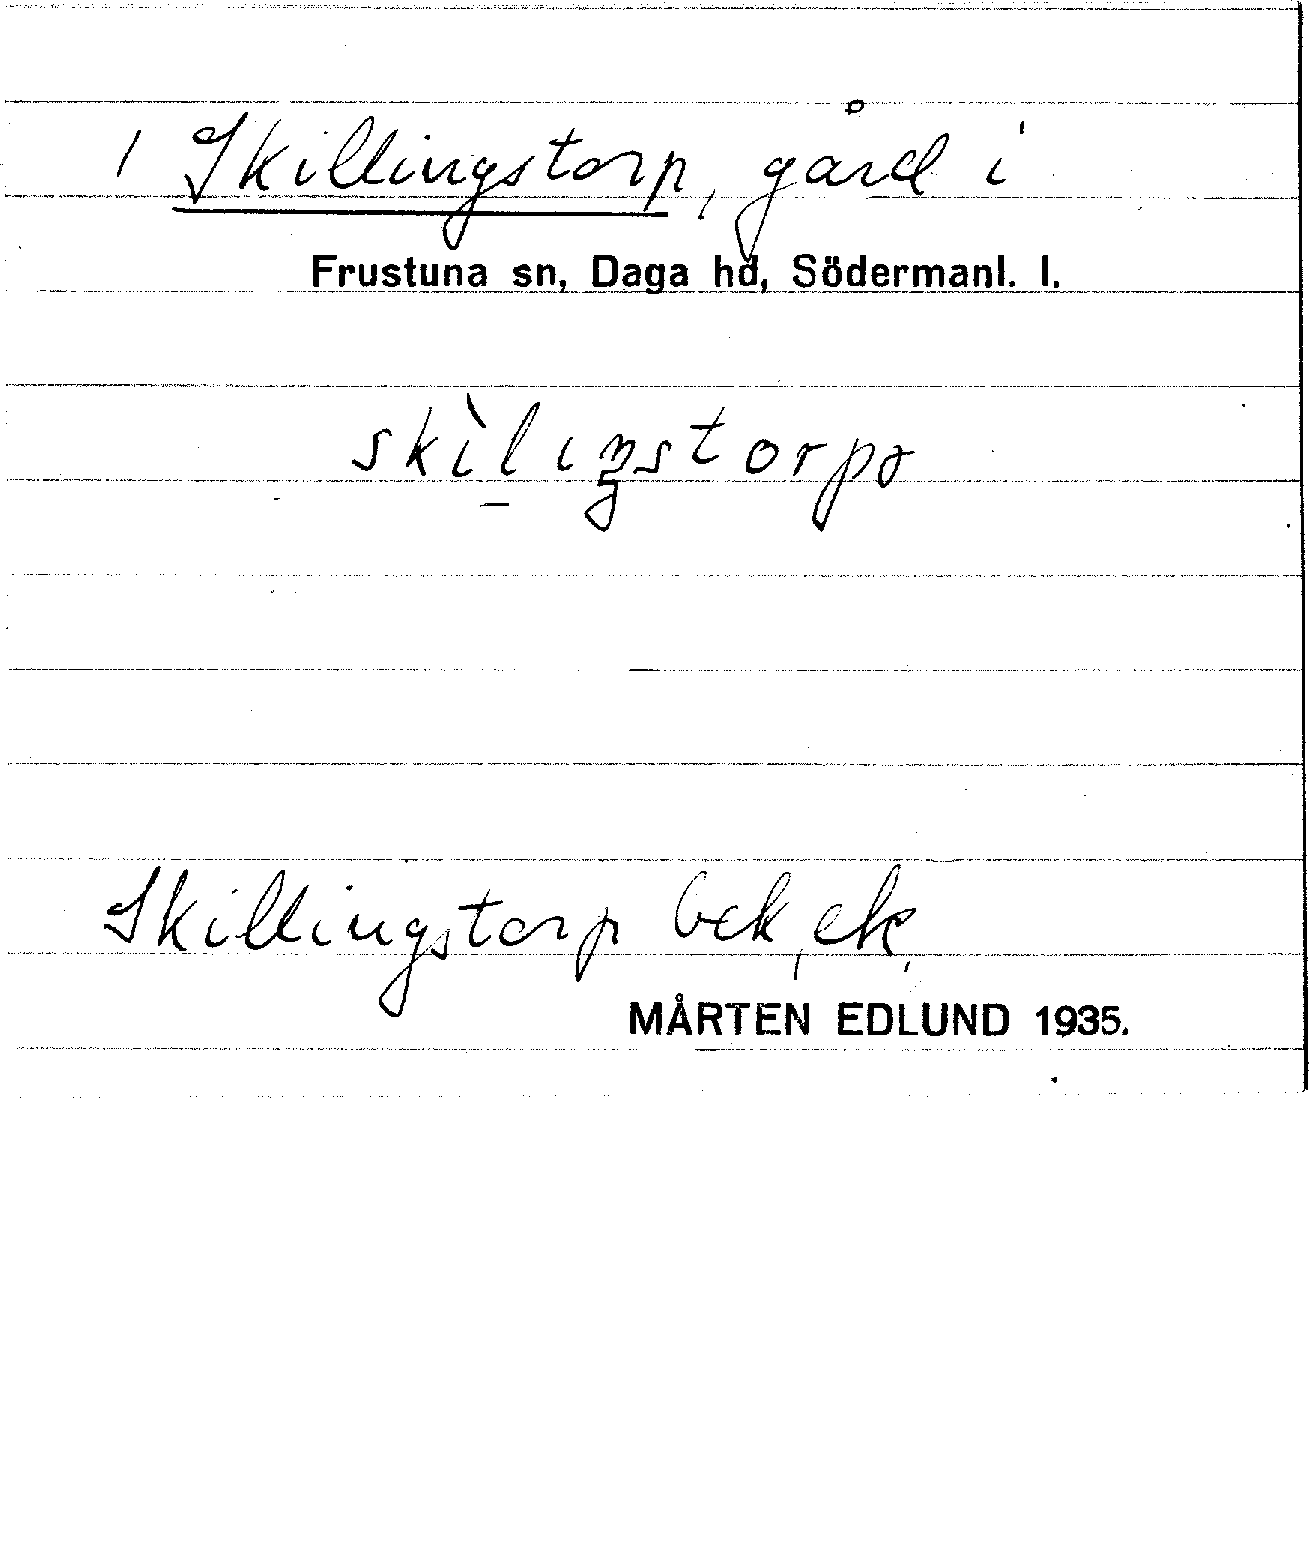 1 Skillingstorp, gård i
Frustuna sn, Daga hd, Södermanl. l.
Skillingstorp bek, ek.
MÅRTEN EDLUND 1935.